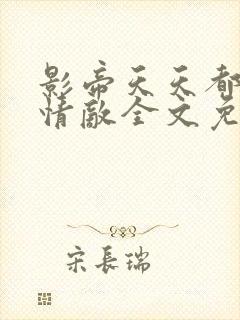 影帝天天都
情敌全文免
宋長瑞